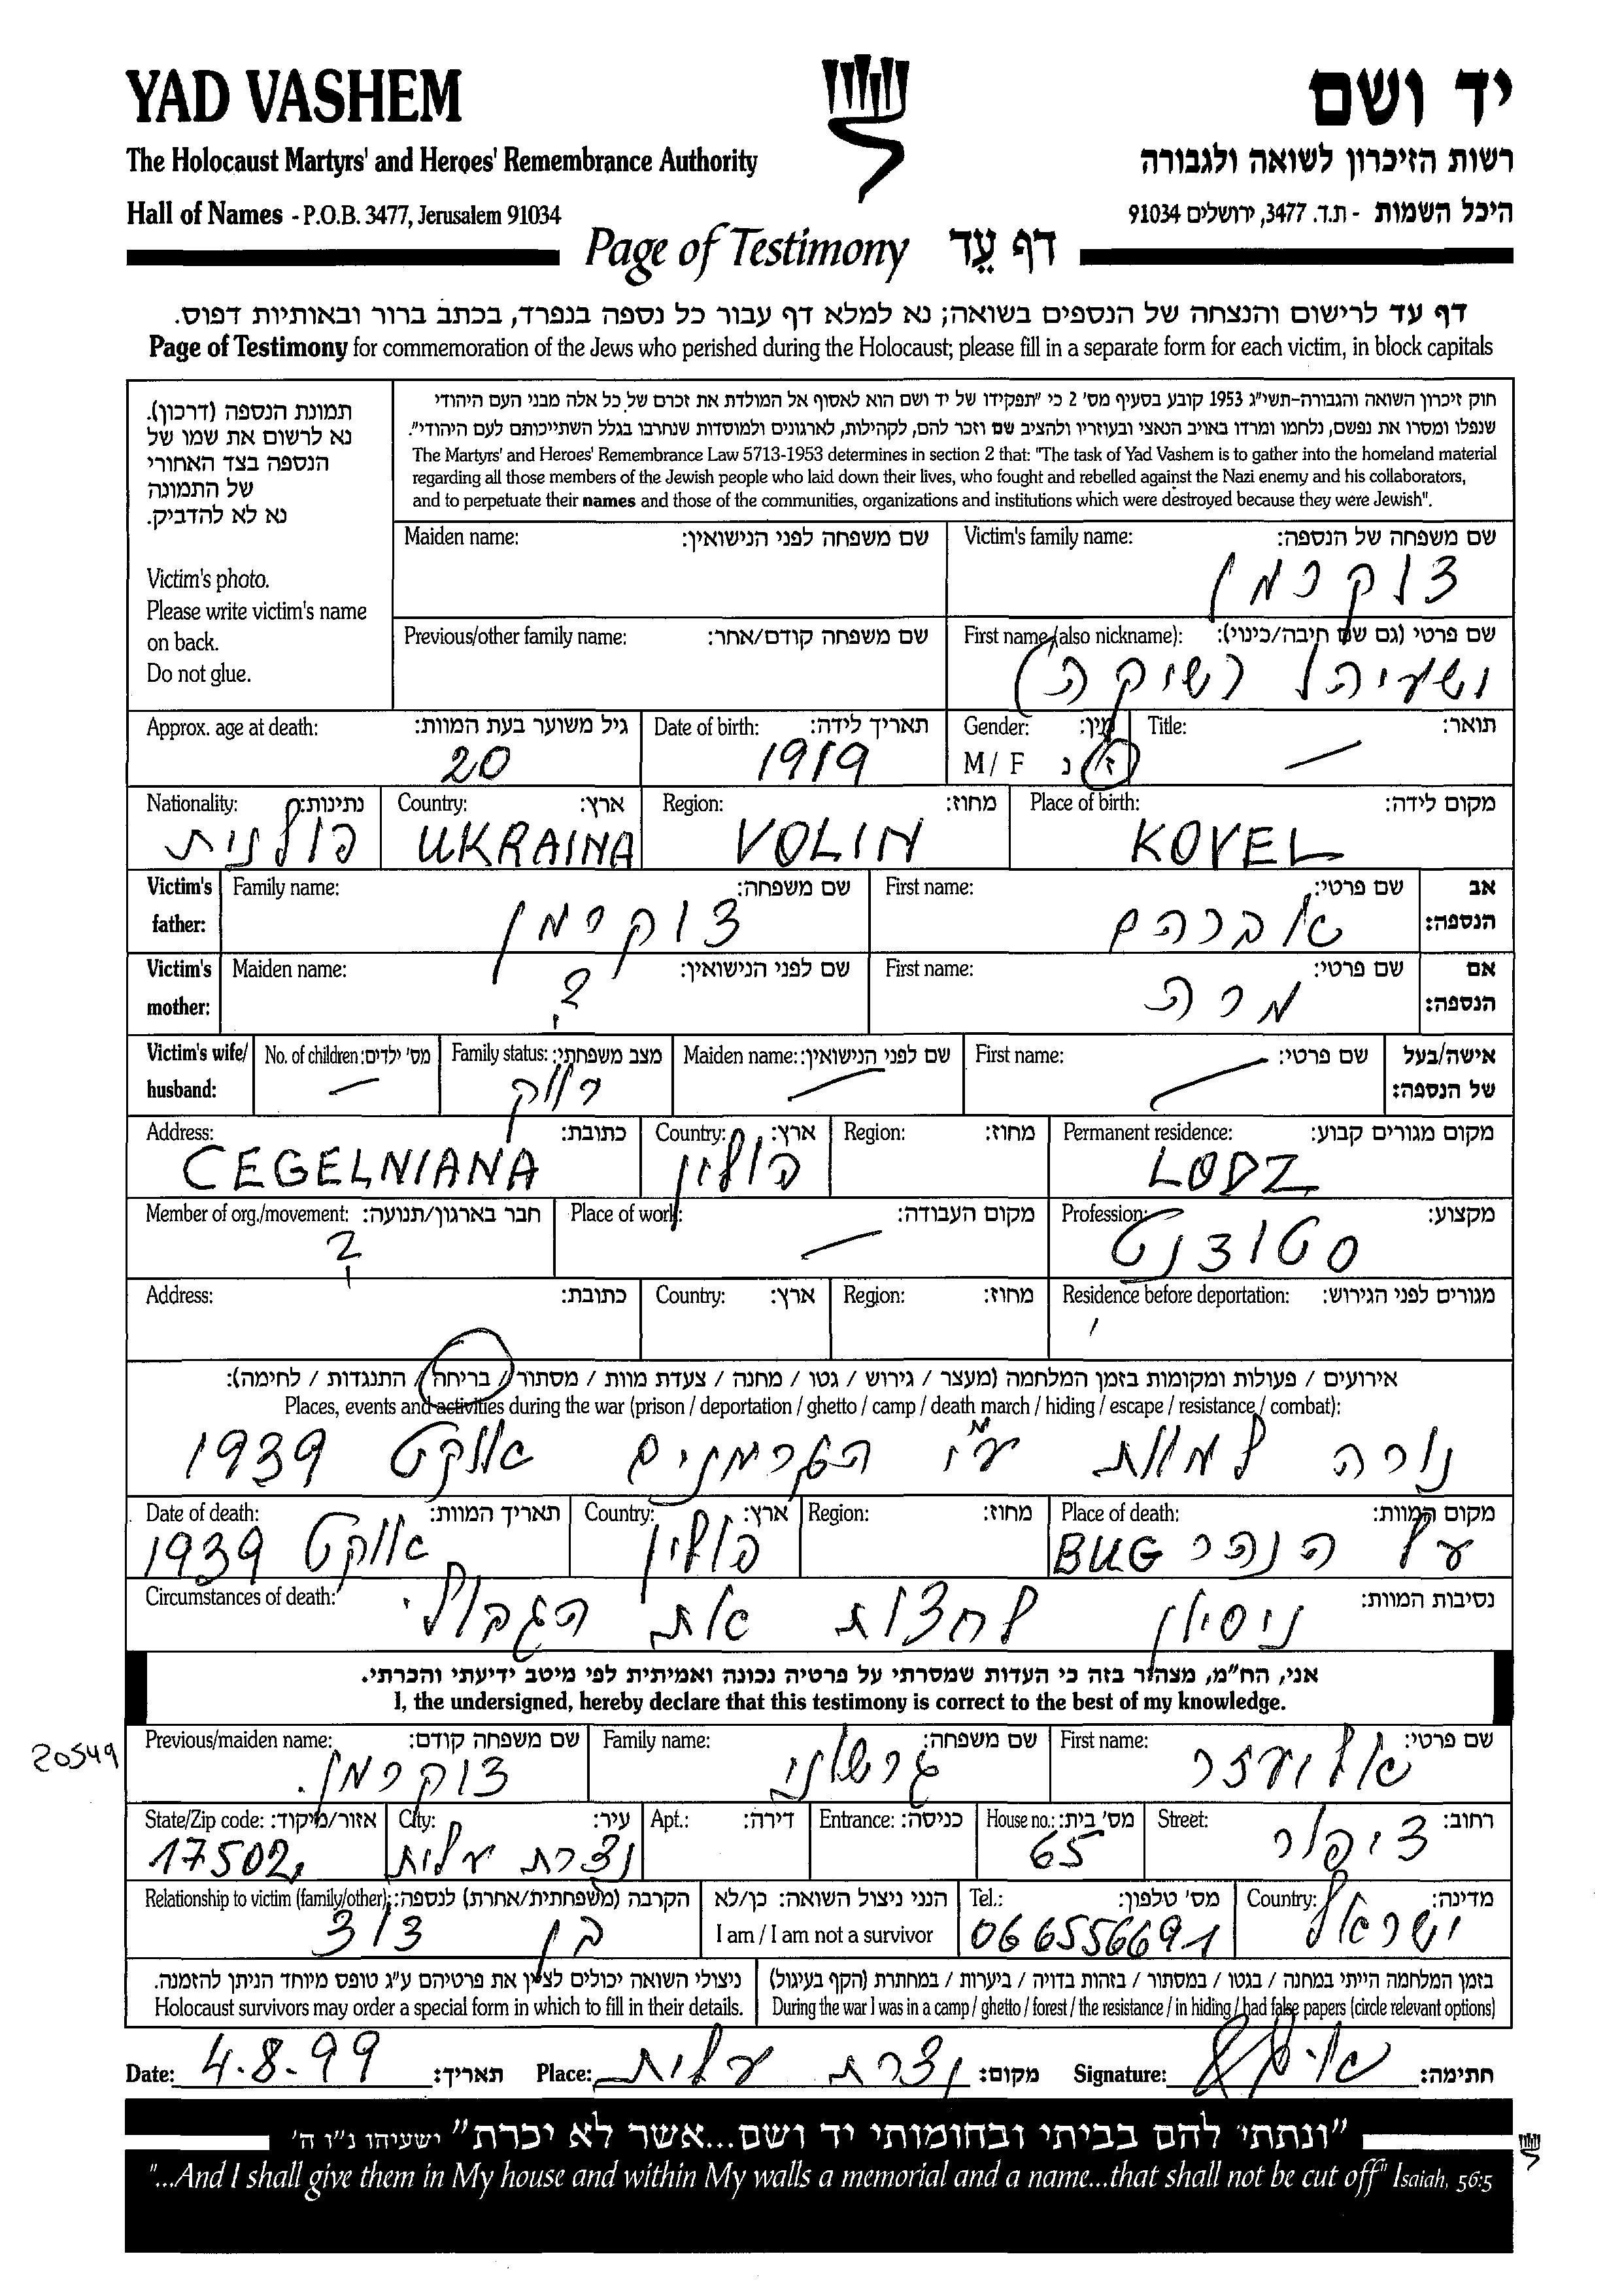 YAD VASHEM
יד ושם
The Holocaust Martyrs' and Heroes' Remembrance Authority
רשות הזיכרון לשואה ולגבורה
Hall of Names - P.O.B. 3477, Jerusalem 91034
היכל השמות - ת.ד. 3477, ירושלים 91034
Page of Testimony דף עֵד
דף עד לרישום והנצחה של הנספים בשואה; נא למלא דף עבור כל נספה בנפרד, בכתב ברור ובאותיות דפוס.
Page of Testimony for commemoration of the Jews who perished during the Holocaust; please fill in a separate form for each victim, in block capitals
תמונת הנספה (דרכון).
נא לרשום את שמו של
הנספה בצד האחורי
של התמונה
נא לא להדביק.
Victim's photo.
Please write victim's name
on back.
Do not glue.
חוק זיכרון השואה והגבורה-תשי"ג 1953 קובע בסעיף מס' 2 כי "תפקידו של יד ושם הוא לאסוף אל המולדת את זכרם של כל אלה מבני העם היהודי
שנפלו ומסרו את נפשם, נלחמו ומרדו באויב הנאצי ובעוזריו ולהציב שם וזכר להם, לקהילות, לארגונים ולמוסדות שנחרבו בגלל השתייכותם לעם היהודי".
The Martyrs' and Heroes' Remembrance Law 5713-1953 determines in section 2 that: "The task of Yad Vashem is to gather into the homeland material
regarding all those members of the Jewish people who laid down their lives, who fought and rebelled against the Nazi enemy and his collaborators,
and to perpetuate their names and those of the communities, organizations and institutions which were destroyed because they were Jewish".
Victim's family name: שם משפחה של הנספה:
צוקרמן
Maiden name: שם משפחה לפני הנישואין:
First name (also nickname): שם פרטי (גם שם חיבה/כינוי):
ישעיהו (שיקה)
Previous/other family name: שם משפחה קודם/אחר:
Title: תואר:
—
Gender: מין:
M / F ז / נ
Date of birth: תאריך לידה:
1919
Approx. age at death: גיל משוער בעת המוות:
20
Place of birth: מקום לידה:
KOVEL
Region: מחוז:
VOLIN
Country: ארץ:
UKRAINA
Nationality: נתינות:
פולנית
Victim's father: אב הנספה:
First name: שם פרטי:
אברהם
Family name: שם משפחה:
צוקרמן
Victim's mother: אם הנספה:
First name: שם פרטי:
מרה
Maiden name: שם לפני הנישואין:
?
Victim's wife/husband: אישה/בעל של הנספה:
First name: שם פרטי:
—
Maiden name: שם לפני הנישואין:
—
Family status: מצב משפחתי:
רווק
No. of children: מס' ילדים:
—
Permanent residence: מקום מגורים קבוע:
LODZ
Region: מחוז:
Country: ארץ:
פולין
Address: כתובת:
CEGELNIANA
Profession: מקצוע:
סטודנט
Place of work: מקום העבודה:
—
Member of org./movement: חבר בארגון/תנועה:
?
Residence before deportation: מגורים לפני הגירוש:
Region: מחוז:
Country: ארץ:
Address: כתובת:
אירועים / פעולות ומקומות בזמן המלחמה (מעצר / גירוש / גטו / מחנה / צעדת מוות / מסתור / בריחה / התנגדות / לחימה):
Places, events and activities during the war (prison / deportation / ghetto / camp / death march / hiding / escape / resistance / combat):
נורה למוות ע"י הגרמנים אוקט 1939
Place of death: מקום המוות:
על הנהר BUG
Region: מחוז:
Country: ארץ:
פולין
Date of death: תאריך המוות:
אוקט 1939
Circumstances of death: נסיבות המוות:
ניסיון לחצות את הגבול
אני, הח"מ, מצהיר בזה כי העדות שמסרתי על פרטיה נכונה ואמיתית לפי מיטב ידיעתי והכרתי.
I, the undersigned, hereby declare that this testimony is correct to the best of my knowledge.
20549
First name: שם פרטי:
אליעזר
Family name: שם משפחה:
גרשוני
Previous/maiden name: שם משפחה קודם:
צוקרמן.
Street: רחוב:
House no.: מס' בית:
65
Entrance: כניסה:
Apt.: דירה:
City: עיר:
נצרת עלית
State/Zip code: אזור/מיקוד:
17502
Country: מדינה:
ישראל
Tel.: מס' טלפון:
066556691
הנני ניצול השואה: כן/לא
I am / I am not a survivor
Relationship to victim (family/other): הקרבה (משפחתית/אחרת) לנספה:
בן דוד
בזמן המלחמה הייתי במחנה / בגטו / במסתור / בזהות בדויה / ביערות / במחתרת (הקף בעיגול)
During the war I was in a camp / ghetto / forest / the resistance / in hiding / had false papers (circle relevant options)
ניצולי השואה יכולים לציין את פרטיהם ע"ג טופס מיוחד הניתן להזמנה.
Holocaust survivors may order a special form in which to fill in their details.
Date: 4.8.99 תאריך: Place: נצרת עלית מקום: Signature: חתימה:
"ונתתי להם בביתי ובחומותי יד ושם...אשר לא יכרת" ישעיהו נ"ו ה'
"...And I shall give them in My house and within My walls a memorial and a name...that shall not be cut off" Isaiah, 56:5